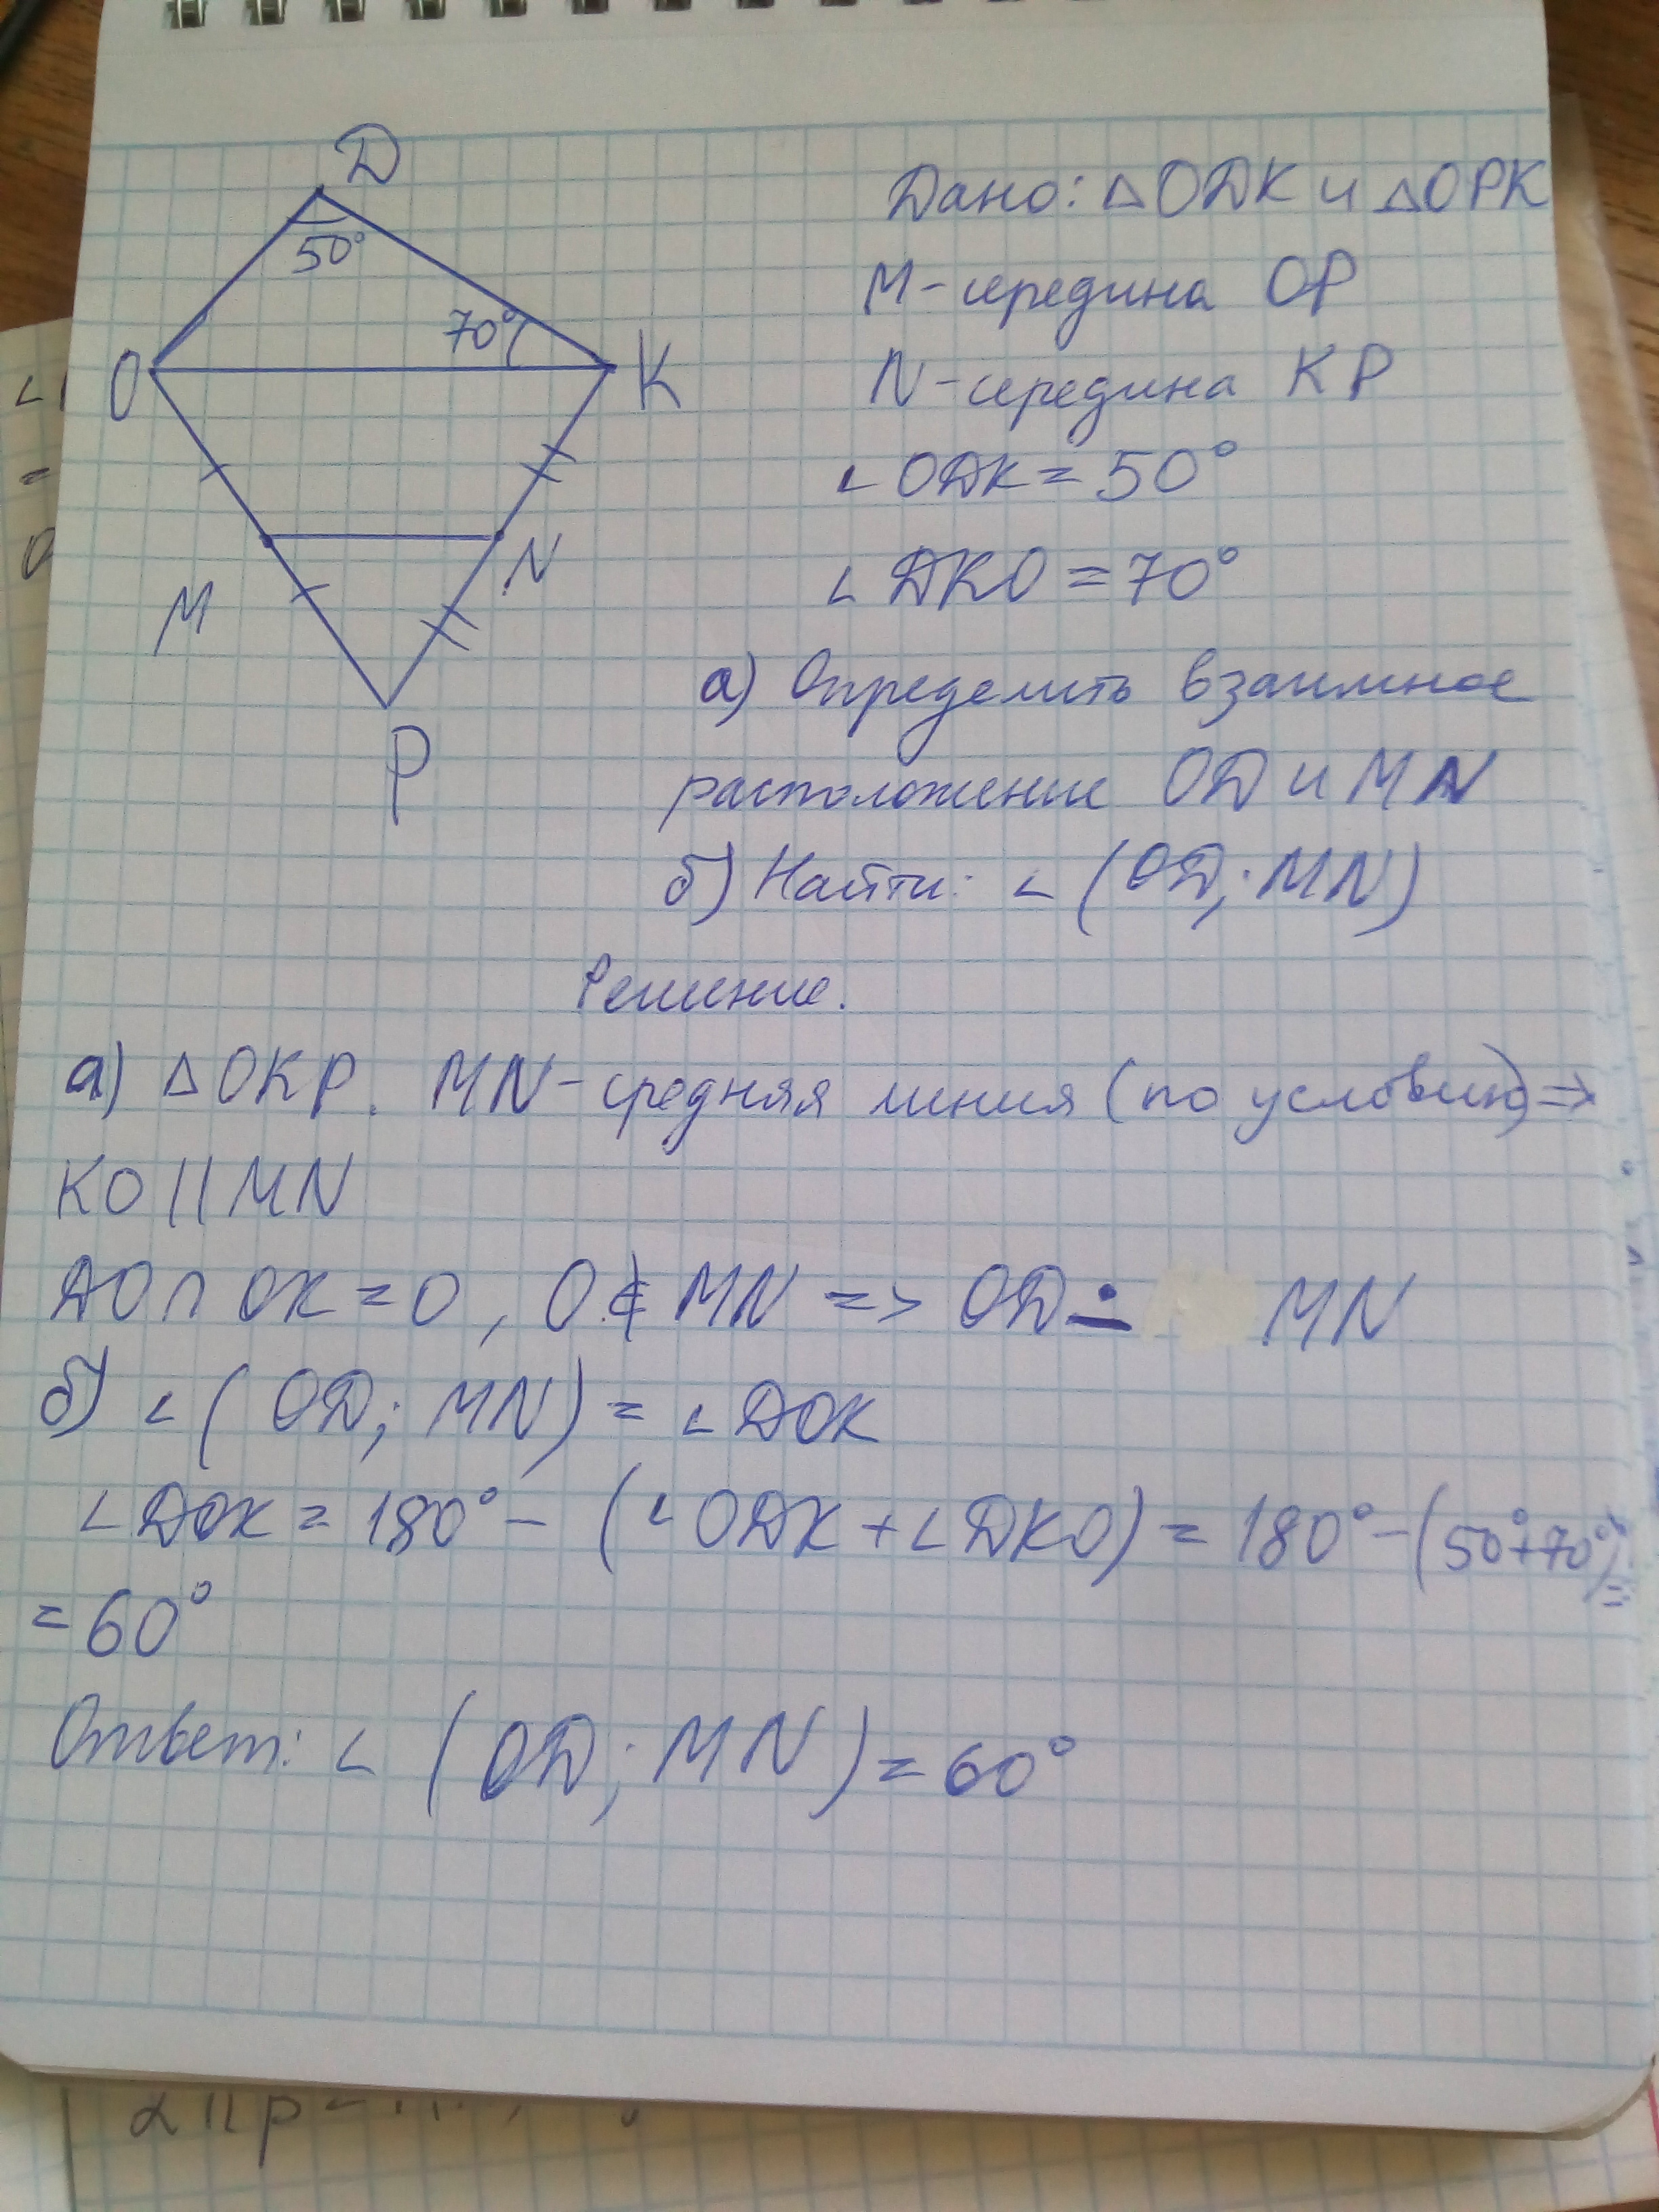 D
50°
70°
O
K
M
N
P
Дано: △ODK и △OPK
M - середина OP
N - середина KP
∠ODK = 50°
∠DKO = 70°
а) Определить взаимное
расположение OD и MN
б) Найти: ∠(OD; MN)
Решение.
а) △OKP. MN - средняя линия (по условию) =>
KO || MN
DO ∩ OK = O, O ∉ MN => OD ∸ MN
б) ∠(OD; MN) = ∠DOK
∠DOK = 180° - (∠ODK + ∠DKO) = 180° - (50° + 70°) =
= 60°
Ответ: ∠(OD; MN) = 60°